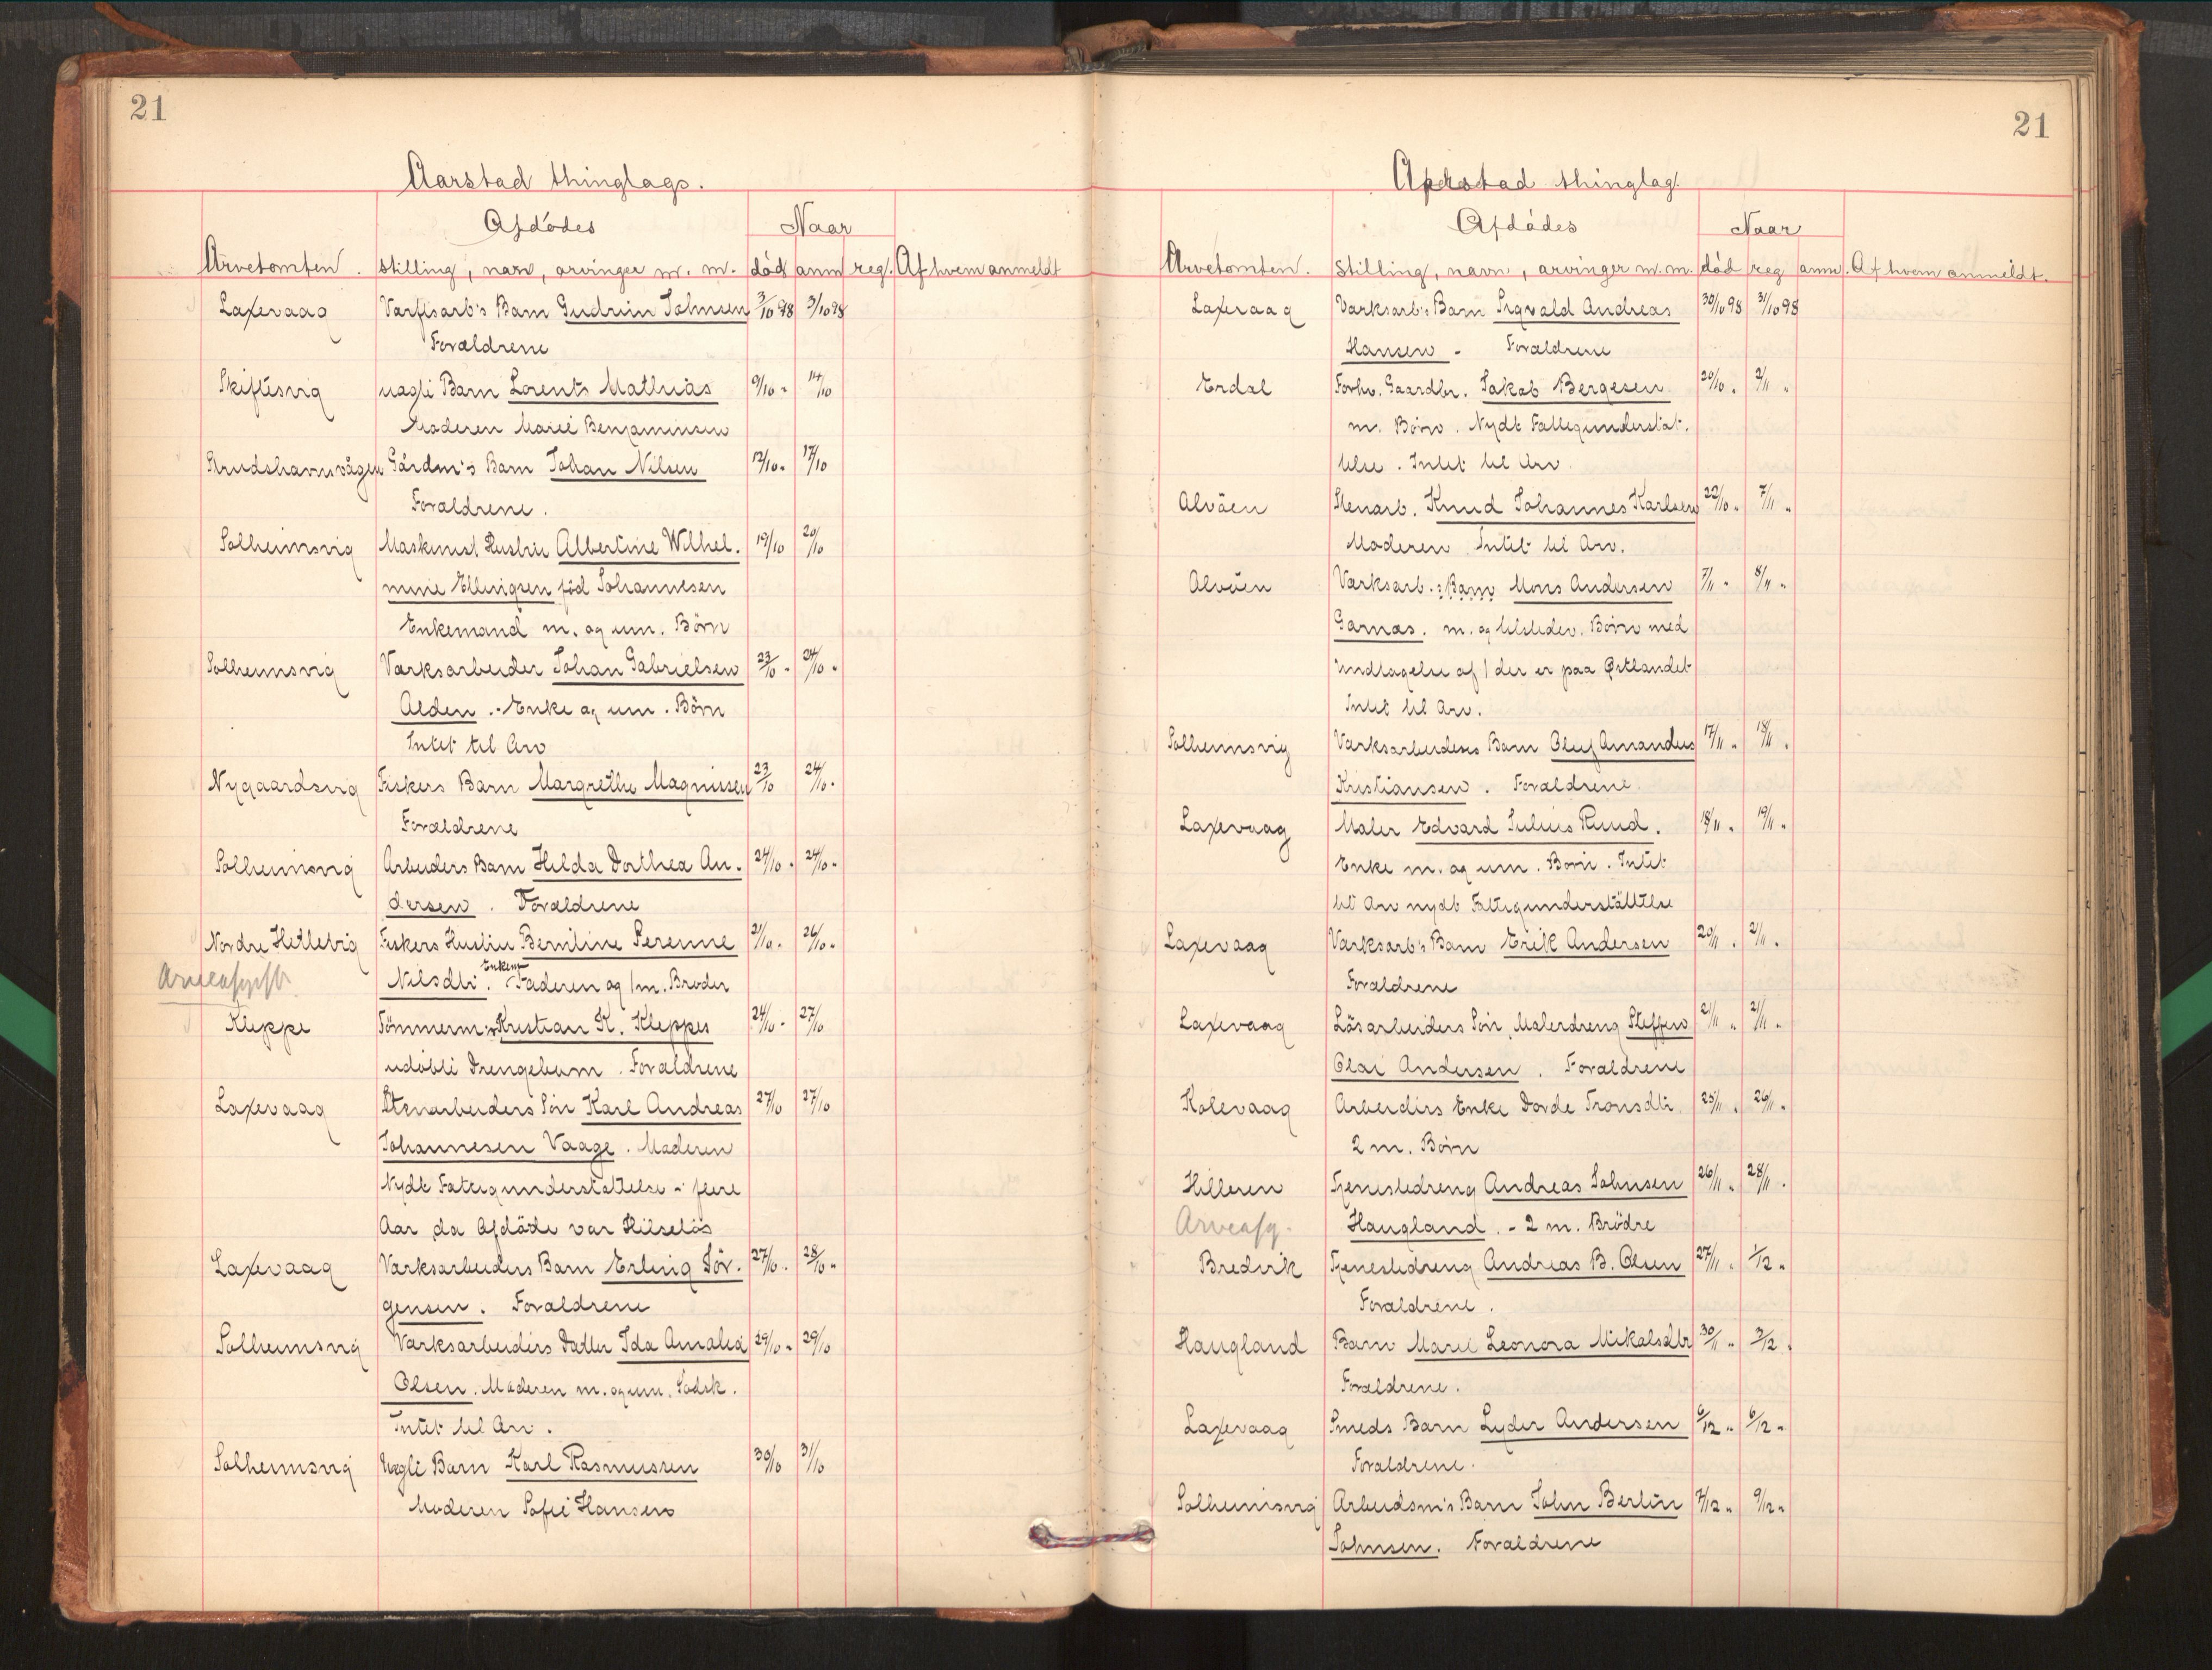 21
Aarstad thinglags.
Afdödes
Naar
Arvetomten.
stilling, navn, arvinger m. m.
död
anm
reg.
Af hvem anmeldt
Laxevaag Varftsarb's Barn Gudrun Johnsen 3/10 98 3/10 98
Forældrene
Skiftesvig uægte Barn Lorents Mathias 9/10 " 14/10
Moderen Marie Benjaminsen
Strudshavnsvågen Gårdm's Barn Johan Nilsen 12/10. 17/10
Forældrene.
Solheimsvig Maskinist Hustru Albertine Wilhel. 19/10 20/10
mine Ellingsen född Johannesen
Enkemand m. og um. Börn
Solheimsvig Værksarbeider Johan Gabrielsen 23/10 " 24/10 "
Alden. - Enke og um. Börn
Intet til Arv
Nygaardsvig Fiskers Barn Margrethe Magnussen 23/10 24/10.
Forældrene
Solheimsvig Arbeiders Barn Hilda Dorthea An. 24/10 " 24/10 "
dersen. Forældrene
Nordre Hetlevig Fiskers Hustru Beniline Serenne 21/10. 26/10 "
Arveafgift Nilsdtr. Enkem Faderen og 1 m. Broder
Kleppe Tömmerm's Kristian K. Kleppes 24/10 . 27/10
udøbte Drengebarn. Forældrene
Laxevaag Stenarbeiders Sön Karl Andreas 27/10 27/10
Johannesen Vaage. Moderen
Nydt Fatigunderstøttelse i flere
Aar da Afdöde var Hilselös
Laxevaag Værksarbeiders Barn Erling Jör. 27/10. 28/10 "
gensen. Forældrene
Solheimsvig Værksarbeiders Datter Ida Amalia 29/10 " 29/10
Olsen. Moderen m. og um. Södsk.
Intet til Arv.
Solheimsvig Uægte Barn Karl Rasmussen 30/10 31/10
Moderen Sofie Hansen
21
Aarstad thinglag.
Afdödes
Naar
Arvetomten.
Stilling, navn, arvinger m.m.
död
reg
anm.
Af hvem anmeldt.
Laxevaag Værksarb's Barn Sigvald Andreas 30/10 98 31/10 98
Hansen - Forældrene
Erdal Forhv. Gaardbr. Jakob Bergesen 20/10 " 2/11 "
m. Börn. Nydt Fattigunderstöt.
telse. Intet til Arv
Alvöen Stenarb. Knud Johannes Karlsen 22/10 " 7/11 "
Moderen Intet til Arv.
Alvöen Værksarb.: Barn Mons Andersen 7/11 " 8/11 "
Garnæs. m. og tilsteder. Börn med
Undtagelse af 1 der er paa Östlandet
Intet til Arv.
Solheimsvig Værksarbeiders Barn Oluf Amandus 17/11 " 18/11 "
Kristiansen. Forældrene.
Laxevaag Maler Edvard Julius Ruud. 18/11 " 19/11 "
Enke m. og um. Börn. Intet
til Arv nydt Fattigunderstöttelse
Laxevaag Værksarb's Barn Erik Andersen 20/11 " 21/11 "
Forældrene
Laxevaag Løsarbeiders Sön Malerdreng Steffen 21/11 " 21/11 "
Olai Andersen. Forældrene
Kolevaag Arbeiders Enke Dorde Tronsdtr. 25/11 " 26/11 "
2 m. Börn
Hilleren Tjenestedreng Andreas Johnsen 26/11 " 28/11 "
Arveafg. Haugland. - 2 m. Brödre
Bredvik Tjenestedreng Andreas B. Olsen 27/11 " 1/12 "
Forældrene.
Haugland Barn Marie Leonora Mikalsdtr 30/11 " 3/12 "
Forældrene.
Laxevaag Smeds Barn Lyder Andersen 6/12 " 6/12 "
Forældrene.
Solheimsvig Arbeidsm's Barn John Bertin 7/12 " 9/12 "
Johnsen. Forældrene